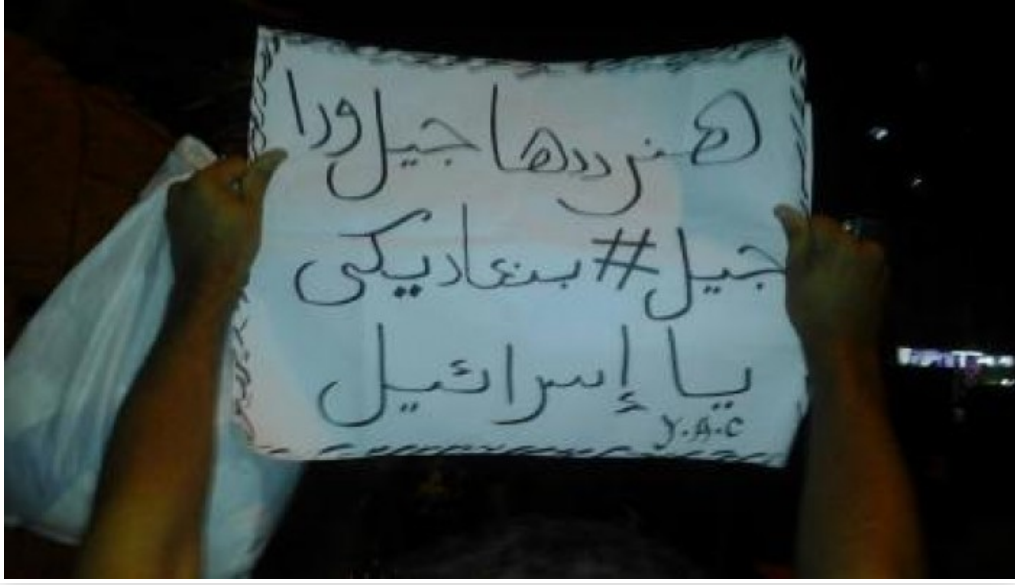 هنرددها جيل ورا
جيل # بنعاديكى
يا إسرائيل
Y.A.C